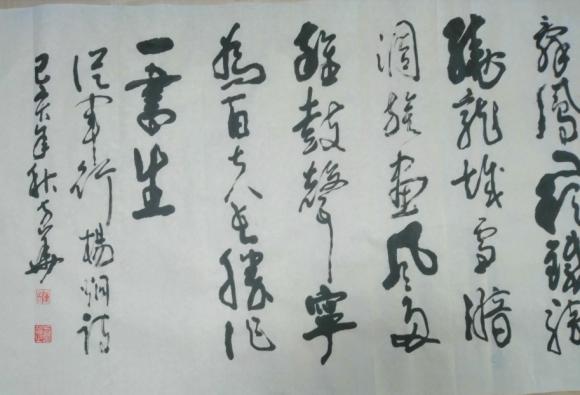 辭鳳闕鐵騎
繞龍城雪暗
凋旗畫風多
雜鼓聲寧
為百夫長勝作
一書生
從軍行楊炯詩
己亥年秋